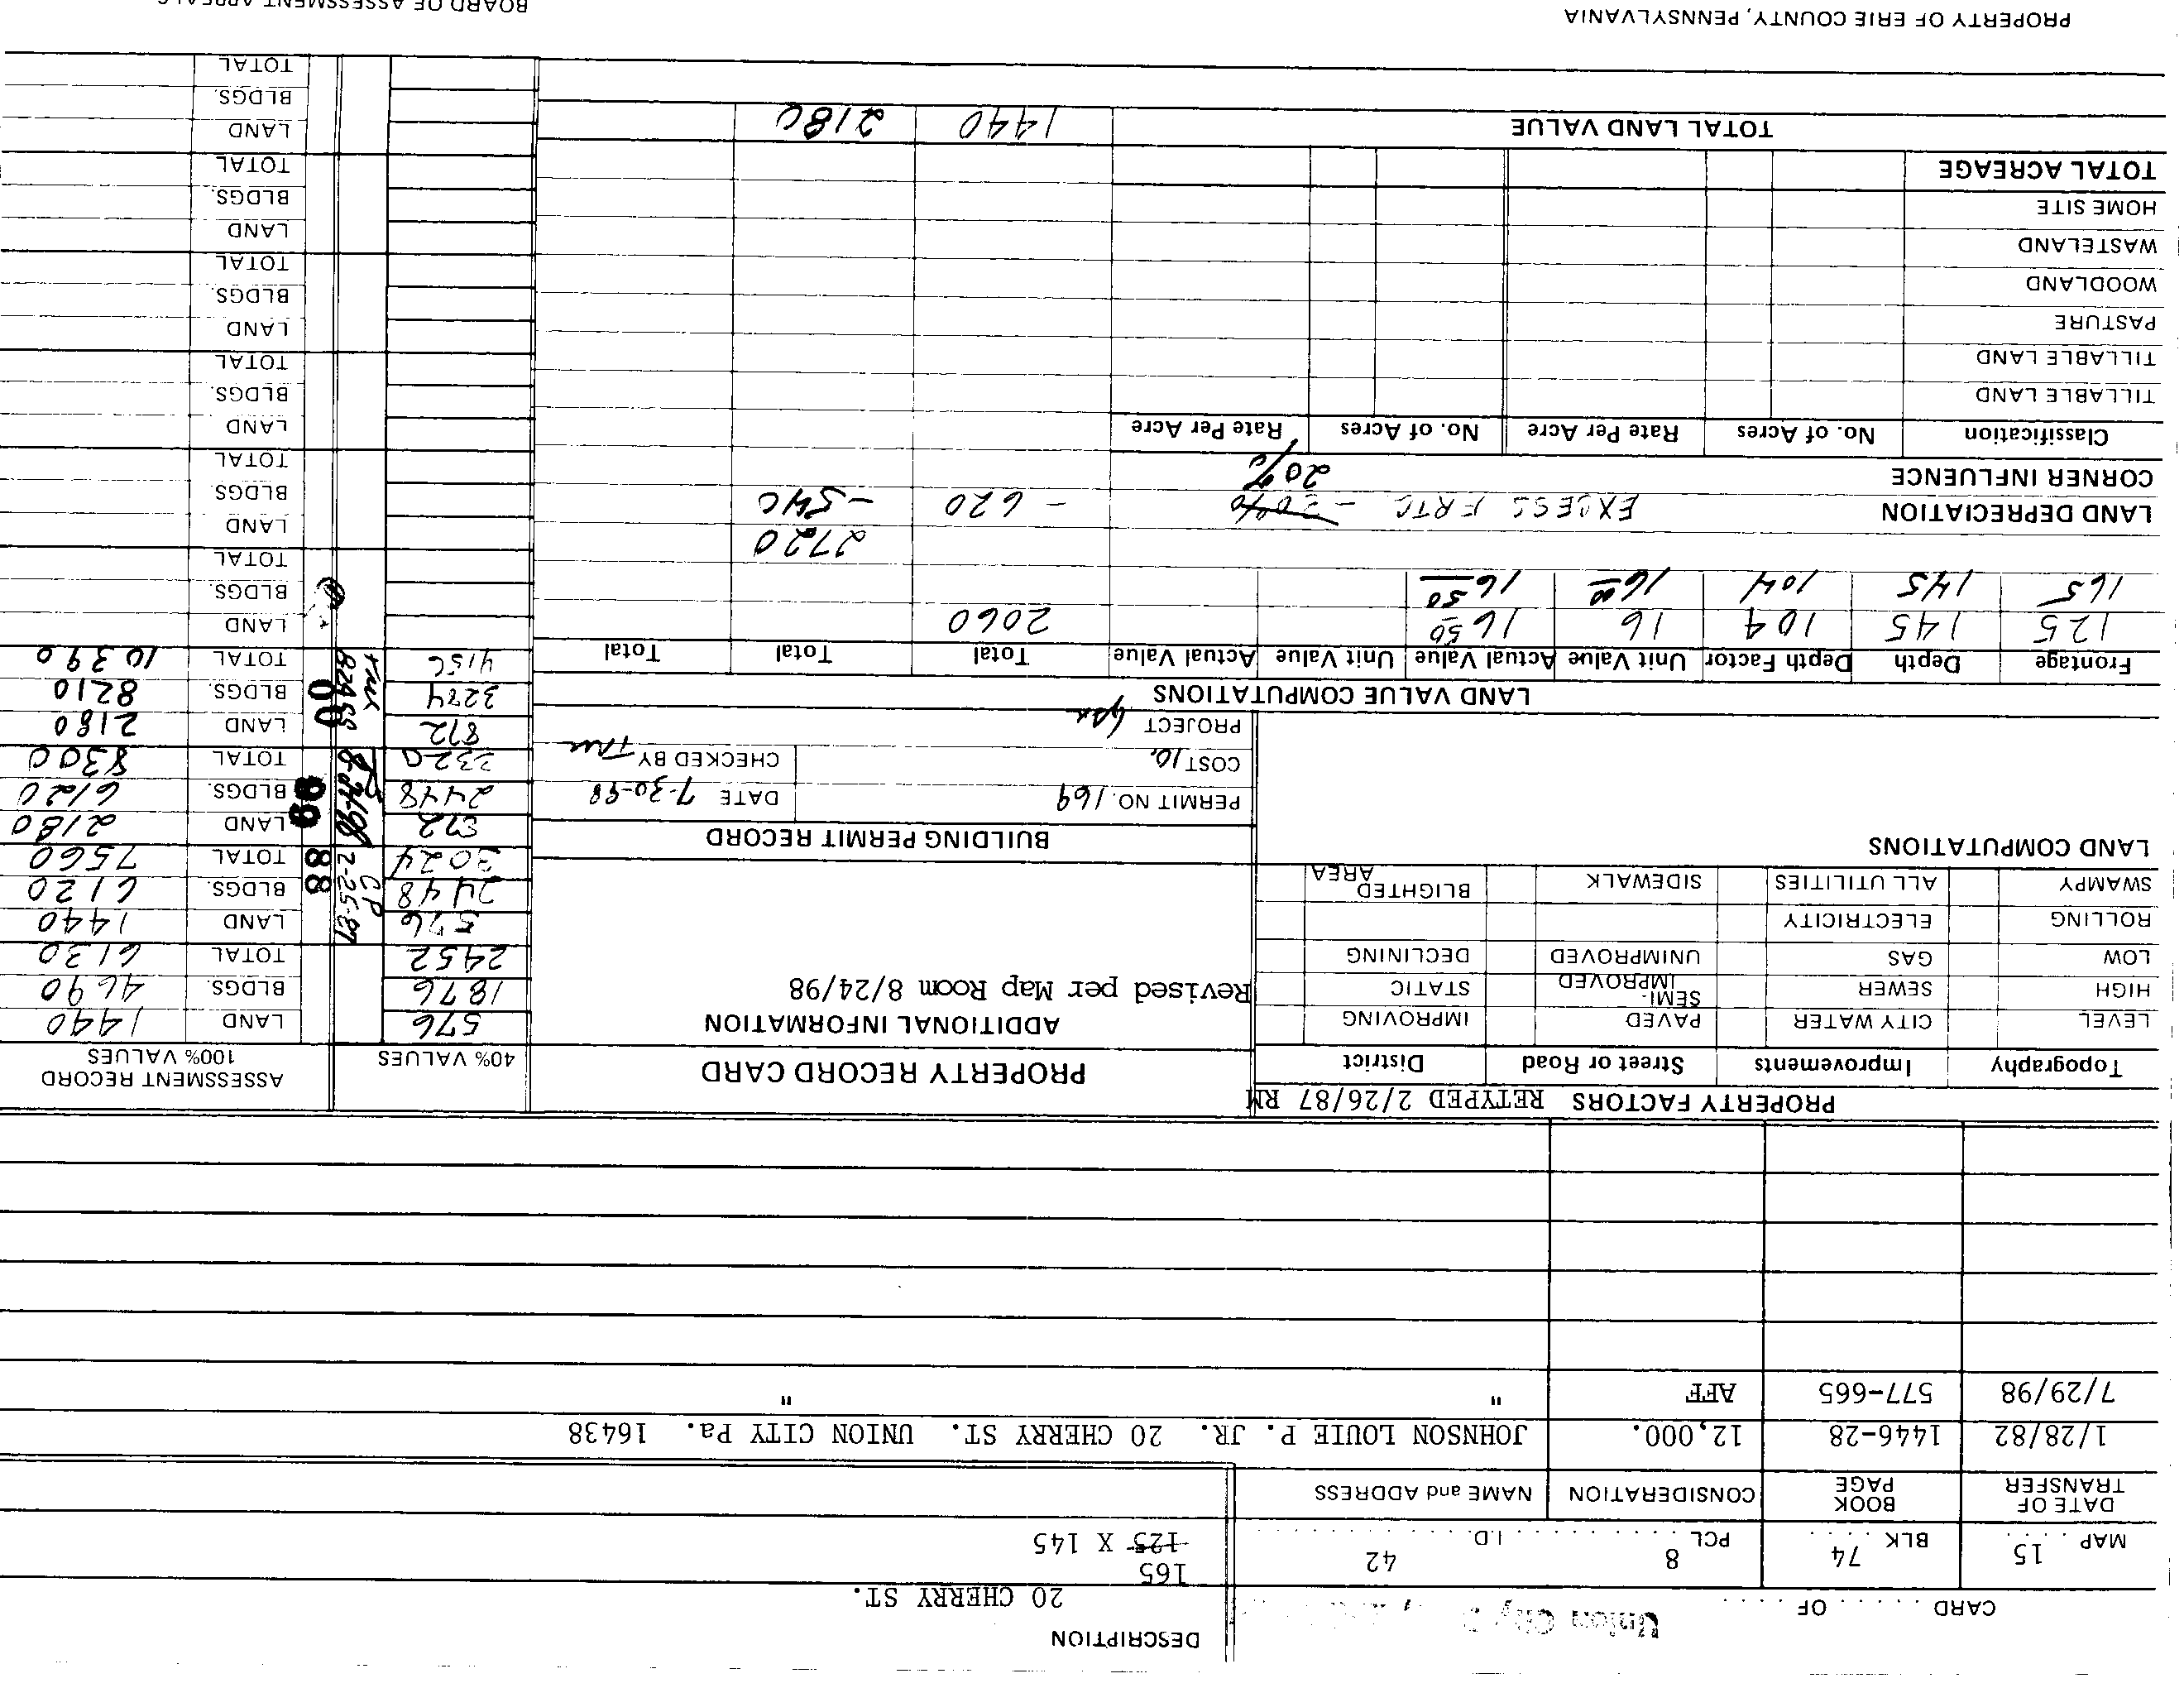 CARD ..... OF .....
Union City
DESCRIPTION
20 CHERRY ST.
MAP 15 BLK 74 PCL 8 I.D. 42
165
125 X 145
DATE OF TRANSFER BOOK PAGE CONSIDERATION NAME and ADDRESS
1/28/82 1446-28 12,000. JOHNSON LOUIE P. JR. 20 CHERRY ST. UNION CITY Pa. 16438
7/29/98 577-665 AFF " "
PROPERTY FACTORS RETYPED 2/26/87 RM
Topography Improvements Street or Road District
LEVEL CITY WATER PAVED IMPROVING
HIGH SEWER SEMI-IMPROVED STATIC
LOW GAS UNIMPROVED DECLINING
ROLLING ELECTRICITY
SWAMPY ALL UTILITIES SIDEWALK BLIGHTED AREA
LAND COMPUTATIONS
PROPERTY RECORD CARD
ADDITIONAL INFORMATION
Revised per Map Room 8/24/98
BUILDING PERMIT RECORD
PERMIT NO. 169 DATE 7-30-98
COST 10, CHECKED BY
PROJECT
40% VALUES ASSESSMENT RECORD 100% VALUES
576 LAND 1440
1876 BLDGS. 4690
2452 TOTAL 6130
576 LAND 1440
2448 CP 2-25-87 88 BLDGS. 6120
3024 TOTAL 7560
872 LAND 2180
2448 99 BLDGS. 6120
3320 TOTAL 8300
872 LAND 2180
3284 00 BLDGS. 8210
4156 TOTAL 10390
LAND
BLDGS.
TOTAL
LAND
BLDGS.
TOTAL
LAND
BLDGS.
TOTAL
LAND
BLDGS.
TOTAL
LAND
BLDGS.
TOTAL
LAND
BLDGS.
TOTAL
LAND VALUE COMPUTATIONS
Frontage Depth Depth Factor Unit Value Actual Value Unit Value Actual Value Total Total Total
125 145 104 16 16 50 2060
165 145 104 16 00 16 50
2720
LAND DEPRECIATION EXCESS FRTG - 30% - 620 - 540
CORNER INFLUENCE 20%
Classification No. of Acres Rate Per Acre No. of Acres Rate Per Acre
TILLABLE LAND
TILLABLE LAND
PASTURE
WOODLAND
WASTELAND
HOME SITE
TOTAL ACREAGE
TOTAL LAND VALUE 1440 2180
PROPERTY OF ERIE COUNTY, PENNSYLVANIA BOARD OF ASSESSMENT APPEALS